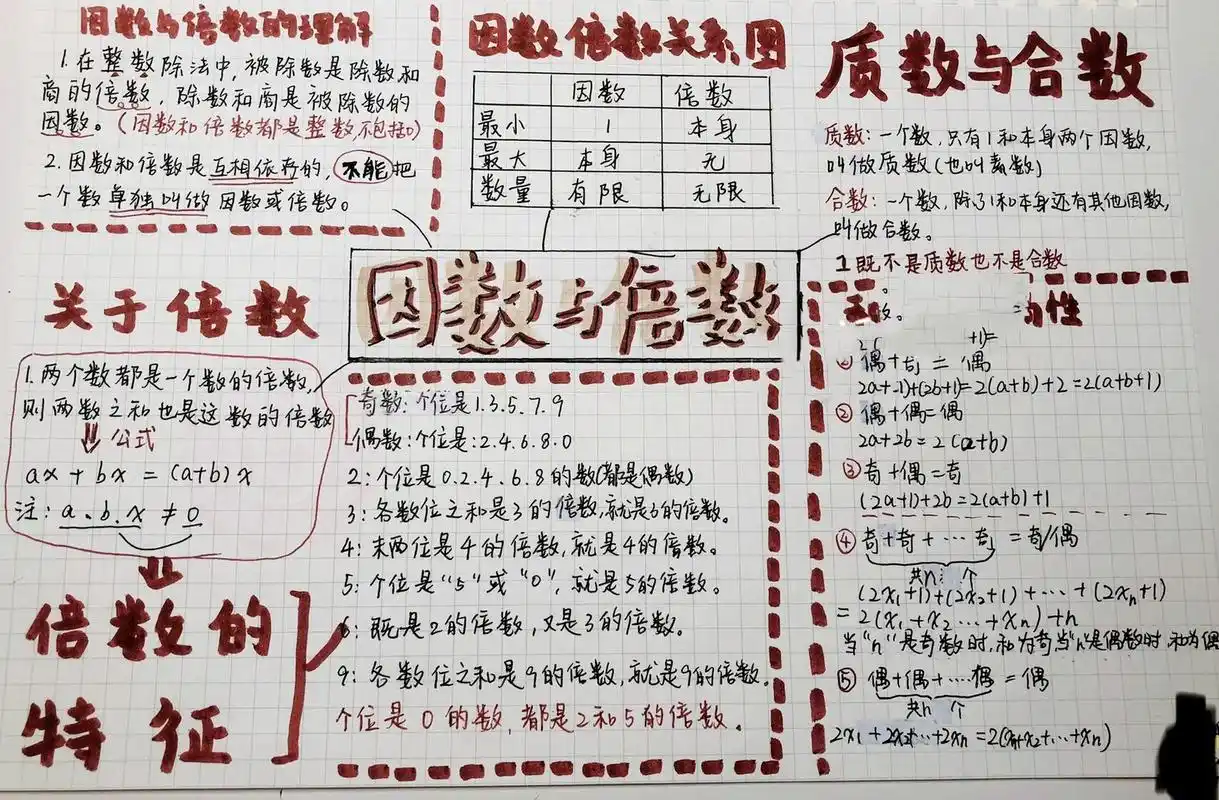 因数与倍数的理解
1.在整数除法中,被除数是除数和
商的倍数,除数和商是被除数的
因数。(因数和倍数都是整数,不包括0)
2.因数和倍数是互相依存的,不能把
一个数单独叫做因数或倍数。
因数倍数关系图
因数 倍数
最小 1 本身
最大 本身 无
数量 有限 无限
质数与合数
质数:一个数,只有1和本身两个因数,
叫做质数(也叫素数)
合数:一个数,除了1和本身还有其他因数,
叫做合数。
1既不是质数也不是合数
因数与倍数
关于倍数
1.两个数都是一个数的倍数,
则两数之和也是这数的倍数
公式
ax+bx=(a+b)x
注:a、b、x≠0
倍数的
特征
奇数:个位是1.3.5.7.9
偶数:个位是:2.4.6.8.0
2:个位是0.2.4.6.8的数(都是偶数)
3:各数位之和是3的倍数,就是3的倍数。
4:末两位是4的倍数,就是4的倍数。
5:个位是"5"或"0",就是5的倍数。
6:既是2的倍数,又是3的倍数。
9:各数位之和是9的倍数,就是9的倍数。
个位是0的数,都是2和5的倍数。
性
数。
+1)=
偶+奇=偶
2a+1)+(2b+1)=2(a+b)+2=2(a+b+1)
②偶+偶=偶
2a+2b=2(a+b)
③奇+偶=奇
(2a+1)+2b=2(a+b)+1
④奇+奇+…奇=奇/偶
共n个
(2x₁+1)+(2x₂+1)+…+(2xₙ+1)
=2(x₁+x₂…+xₙ)+n
当"n"是奇数时,和为奇当"n"是偶数时,和为偶
⑤偶+偶+…偶=偶
共n个
2x₁+2x₂+…+2xₙ=2(x₁+x₂+…+xₙ)